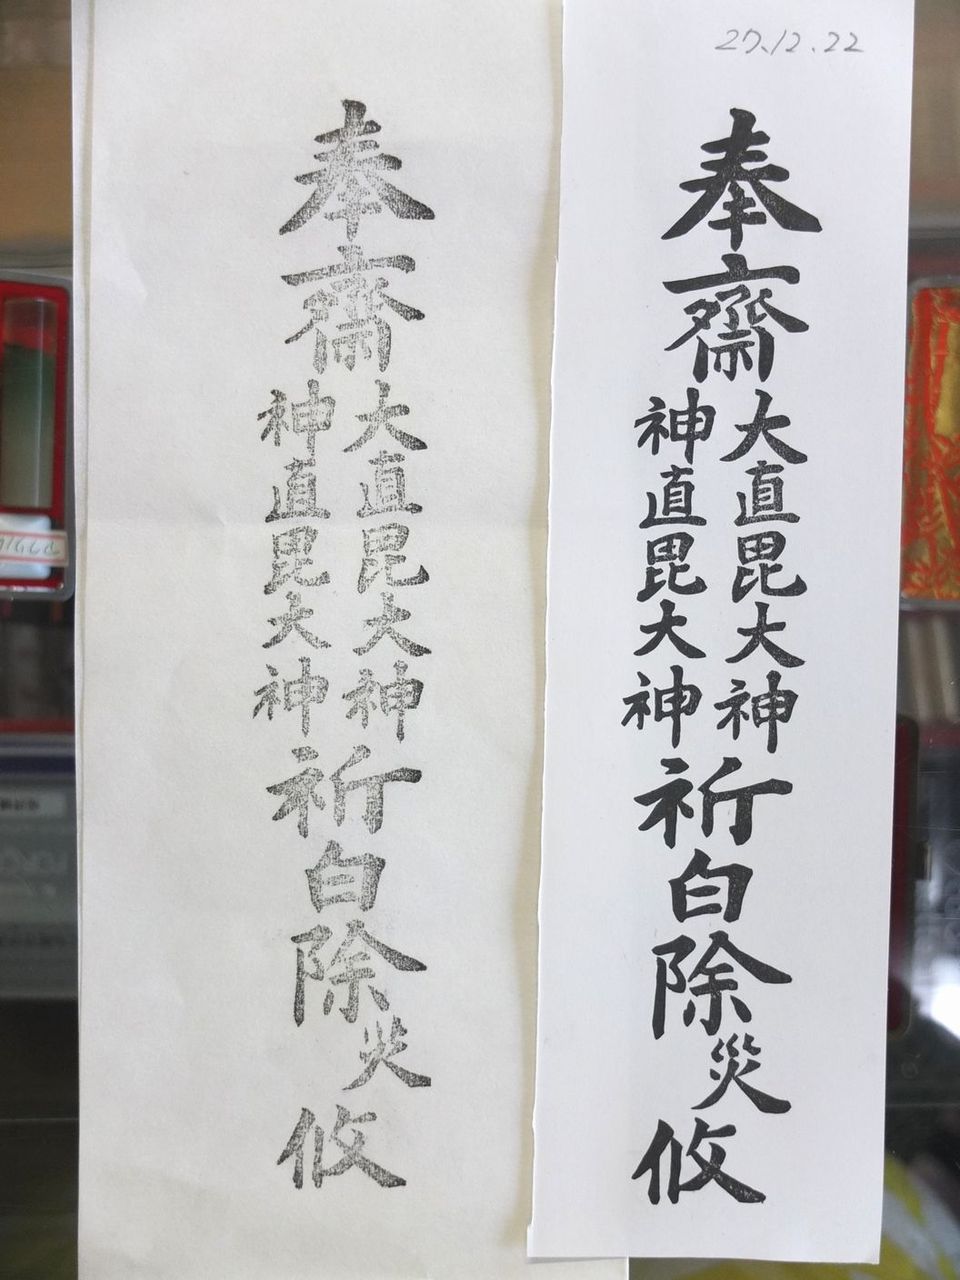 27.12.22
奉齋
大直毘大神
神直毘大神
祈白除災攸
奉齋
大直毘大神
神直毘大神
祈白除災攸